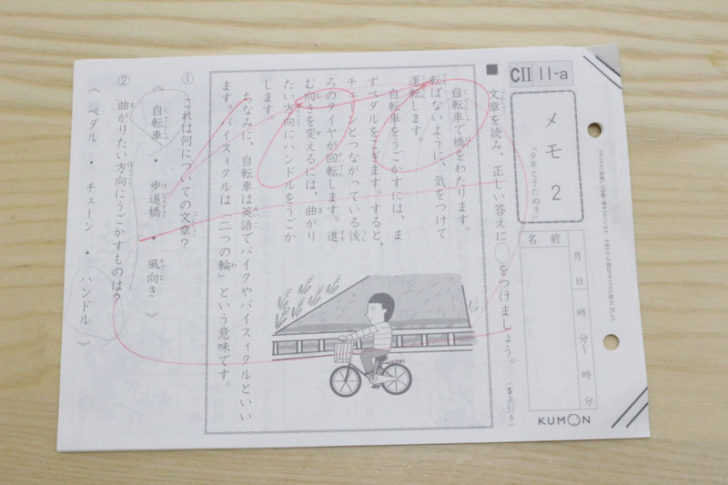 CII 11-a
メモ 2
名前
月 日
時 分〜 時 分
KUMON
■ 文章を読み、正しい答えに○をつけましょう。
自転車で橋をわたります。
転ばないように、気をつけて
運転します。
自転車をうごかすには、ま
ずペダルをこぎます。すると、
チェーンとつながっている後
ろのタイヤが回転します。進
む向きを変えるには、曲がり
たい方向にハンドルをうごか
します。
ちなみに、自転車は英語でバイクやバイスィクルといい
ます。バイスィクルは「二つの輪」という意味です。
① これは何についての文章？
（ 自転車 ・ 歩道橋 ・ 風向き ）
② 曲がりたい方向にうごかすものは？
（ ペダル ・ チェーン ・ ハンドル ）